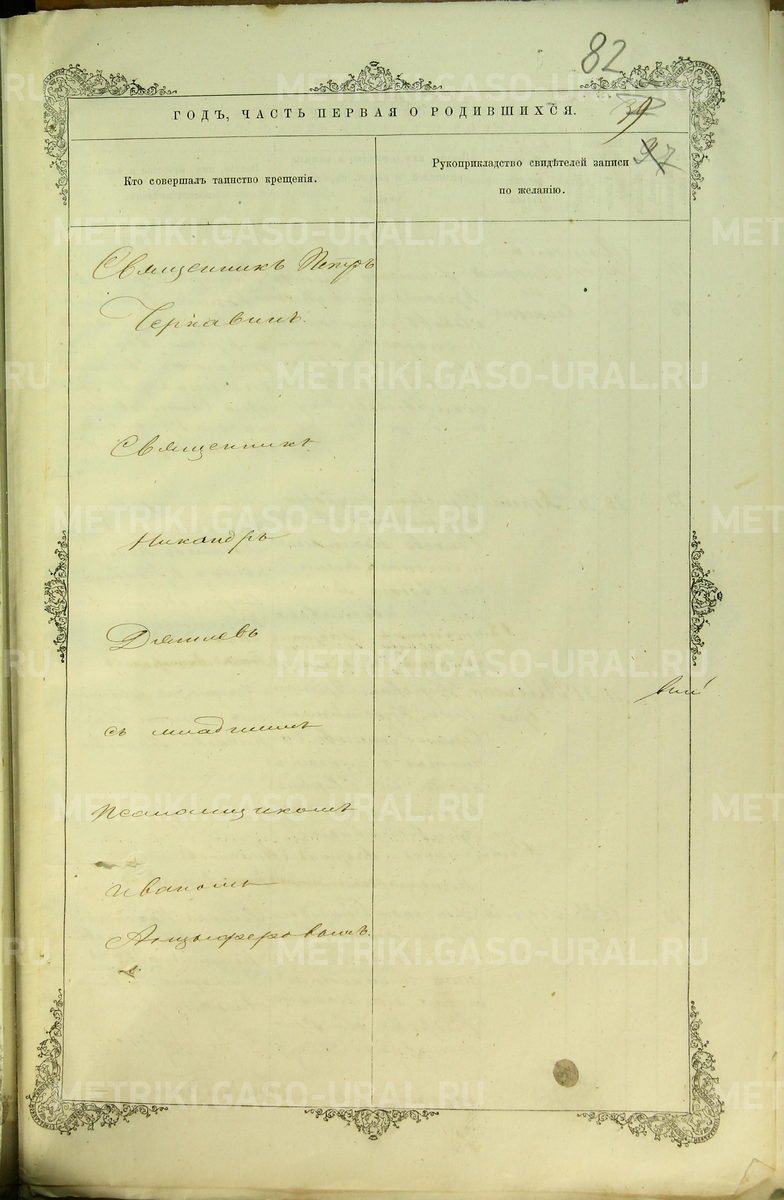 82
ГОДЪ, ЧАСТЬ ПЕРВАЯ О РОДИВШИХСЯ.
97
Кто совершалъ таинство крещенія.
Рукоприкладство свидѣтелей записи
по желанію.
Священникъ Петръ
Черкавинъ.
Священникъ
Никандръ
с младшимъ
Псаломщикомъ
Иваномъ
Анцыферовымъ.
METRIKI.GASO-URAL.RU